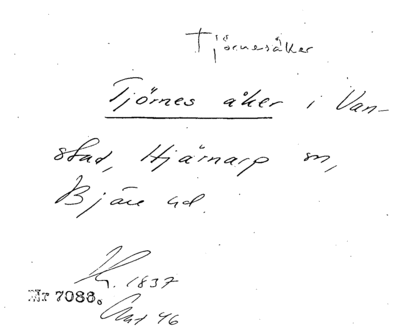 Tjörnesåker
Tjörnes åker i Van-
stad, Hjärnarp sn,
Bjäre hd.
1837
Mr 7086.
Akt 46